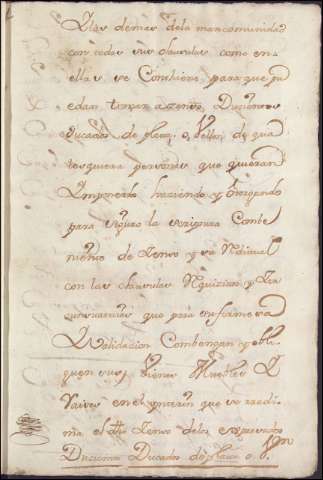 Y las demas dela mancomunidad
con todas sus clausulas como en
ellas se Contiene para que pu
edan tomar a zenso, Duzientos
Ducados de plata, o, Vellon de qua
lesquiera personas que quieran
Ymponerlo haziendo y otorgando
para seguro la scriptura Conbe
niente de Zenso y su Nominal
con las clausulas Nquisitas y
que para su firmeza
Y Validacion Combengan y obli
guen sus Bienes Muebles Y
Raizes en el ynterin que se redi
ma el dho Zenso delos expresados
Duzientos Ducados de plata o, Von